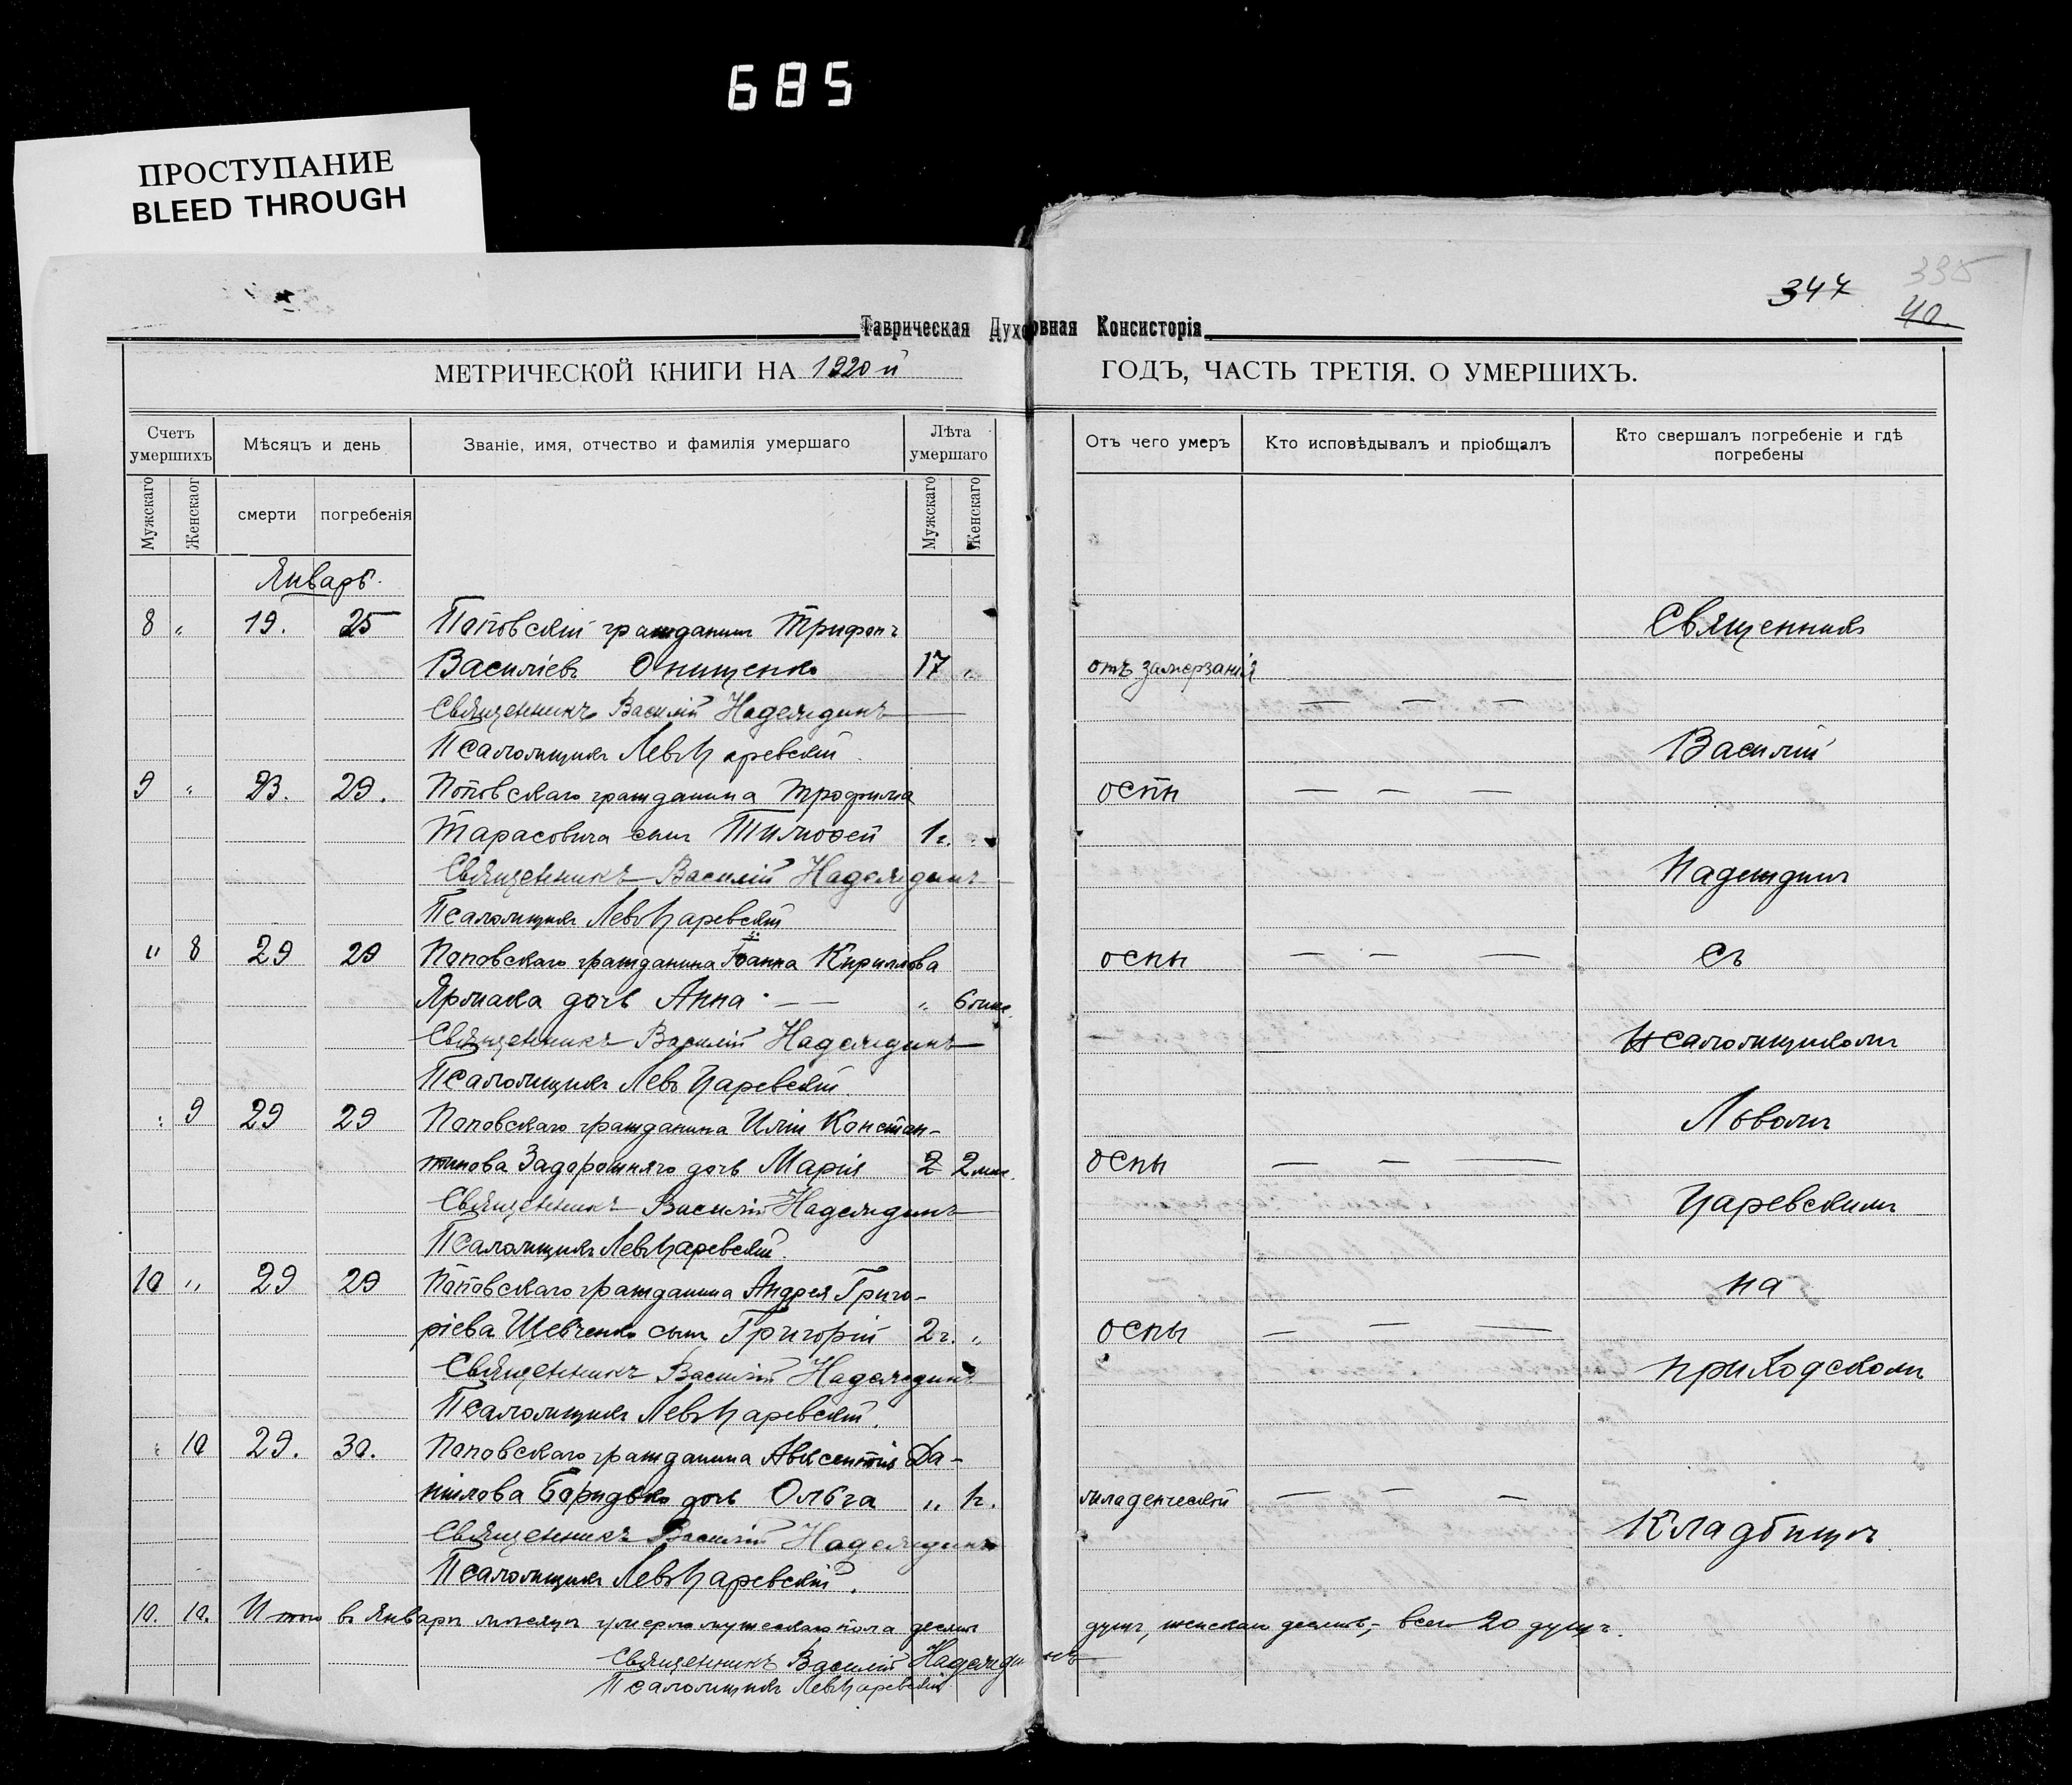 685
ПРОСТУПАНИЕ
BLEED THROUGH
347
335
40.
Таврическая Духовная Консисторія
МЕТРИЧЕСКОЙ КНИГИ НА 1920 й ГОДЪ, ЧАСТЬ ТРЕТІЯ. О УМЕРШИХЪ.
Счетъ умершихъ
Мѣсяцъ и день
Званіе, имя, отчество и фамилія умершаго
Лѣта умершаго
Отъ чего умеръ
Кто исповѣдывалъ и пріобщалъ
Кто свершалъ погребеніе и гдѣ погребены
Мужскаго
Женскаог
смерти
погребенія
Мужскаго
Женскаго
Январь.
8 „ 19. 25 Поповскій гражданинъ Трифонъ Священникъ
Василіевъ Онищенко 17 „ отъ замерзанія
Священникъ Василій Надеждинъ — — —
Псаломщикъ Левъ Царевскій. Василій
9 „ 23. 29. Поповскаго гражданина Трофима оспы — — —
Тарасовича сынъ Тимофей 1г. „
Священникъ Василій Надеждинъ Надеждинъ
Псаломщикъ Левъ Царевскій
„ 8 29 29 Поповскаго гражданина Іоанна Кириллова оспы — — — съ
Ярмака дочь Анна — — „ 6 мис.
Священникъ Василій Надеждинъ псаломщикомъ
Псаломщикъ Левъ Царевскій.
„ 9 29 29 Поповскаго гражданина Иліи Констан- Львомъ
тинова Задорожняго дочь Марія 2 2 мис. оспы — — —
Священникъ Василій Надеждинъ Царевскимъ
Псаломщикъ Левъ Царевскій.
10 „ 29 29 Поповскаго гражданина Андрея Григо- на
ріева Шевченко сынъ Григорій 2г. „ оспы — — —
Священникъ Василій Надеждинъ приходскомъ
Псаломщикъ Левъ Царевскій.
„ 10 29. 30. Поповскаго гражданина Авксентія Да-
ніилова дочь Ольга „ 1г. младенческой — — —
Священникъ Василій Надеждинъ Кладбищѣ
Псаломщикъ Левъ Царевскій.
10. 10. Итого въ Январѣ мѣсяцѣ умерло мужескаго пола десять душъ, женскаго десять,- всего 20 душъ.
Священникъ Василій Надеждинъ
Псаломщикъ Левъ Царевскій